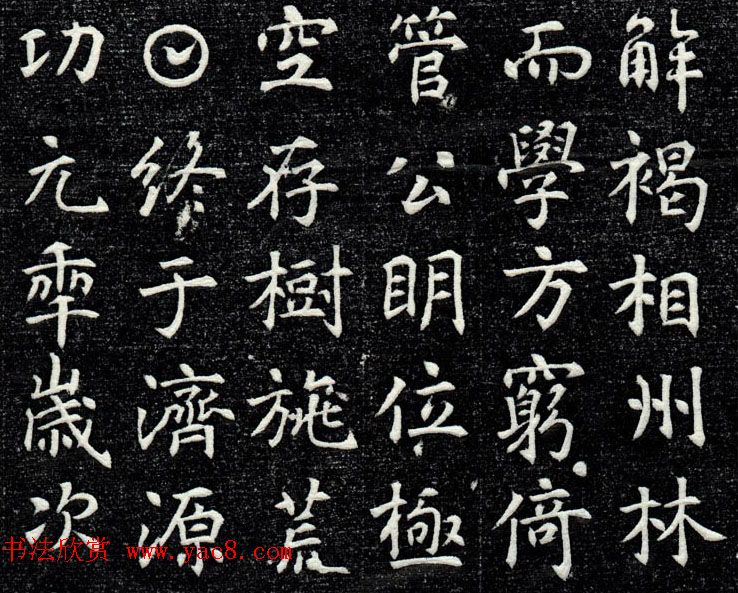 解褐相州林
而學方窮倚
管公眀位極
空存樹施荒
𡆠終于濟源
功元秊歲次
书法欣赏 www.yac8.com